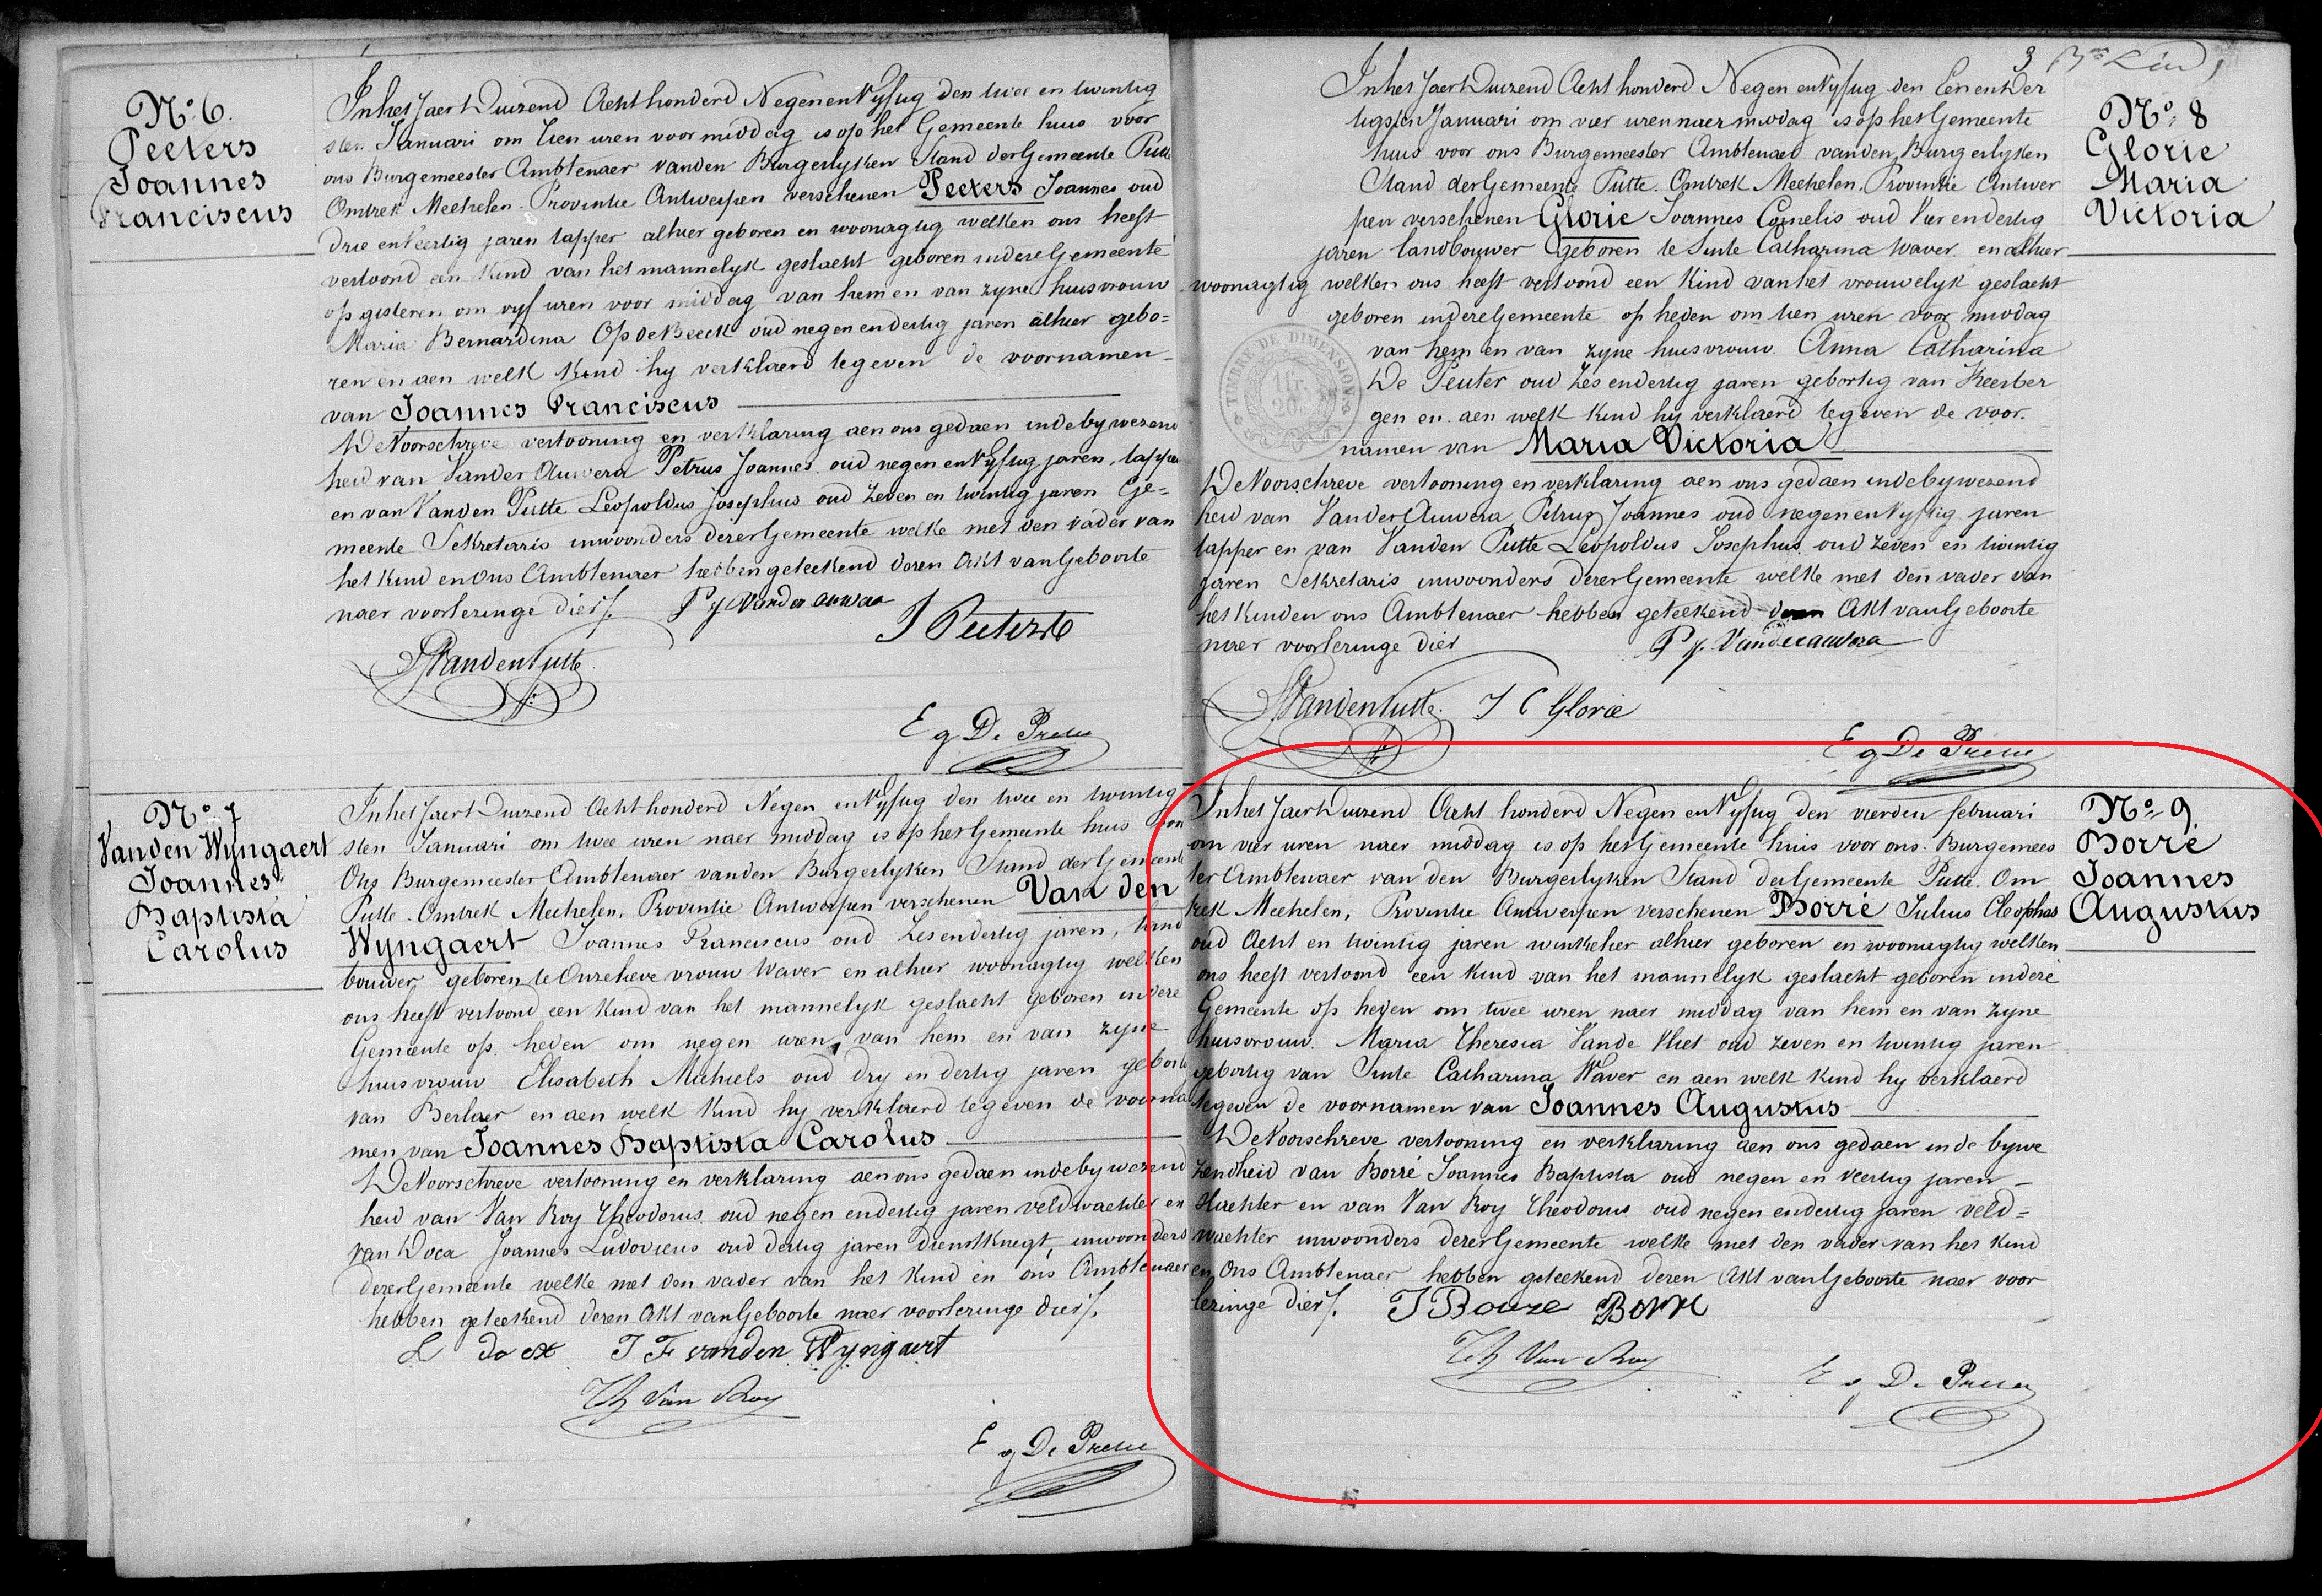 N.o 6.
Peeters
Joannes
Franciscus
In het Jaer Duizend Acht honderd Negen en Vyftig den twee en twintig
sten Januari om tien uren voor middag is op het Gemeente huis voor
ons Burgemeester Ambtenaer van den Burgerlyken Stand der Gemeente Putte
Omtrek Mechelen. Provintie Antwerpen verschenen Peeters Joannes oud
drie en Veertig jaren tapper alhier geboren en woonagtig welken ons heeft
vertoond een Kind van het mannelyk geslacht geboren in dere Gemeente
op gisteren om vyf uren voor middag van hem en van zyne huisvrouw
Maria Bernardina Op de Beeck oud negen en dertig jaren alhier gebo=
ren en aen welk Kind hy verklaerd te geven de voornamen
van Joannes Franciscus
De Voorschreve vertooning en verklaring aen ons gedaen in de bywezend
heid van Vander Auwera Petrus Joannes oud negen en Vyftig jaren, tapper
en van Vanden Putte Leopoldus Josephus oud zeven en twintig jaren Ge=
meente Sekretaris inwoonders dezer Gemeente welke met den vader van
het Kind en Ons Ambtenaer hebben geteekend deren Akt van Geboorte
naer voorlezinge dier/. P J Vanderauwera
J Peeters
Vanden Putte
E g De Preter
N.o 7
Vanden Wyngaert
Joannes
Baptista
Carolus
In het Jaer Duizend Acht honderd Negen en Vyftig den twee en twintig
sten Januari om twee uren naer middag is op het Gemeente huis voor
Ons Burgemeester Ambtenaer van den Burgerlyken Stand der Gemeente
Putte. Omtrek Mechelen. Provintie Antwerpen verschenen Van den
Wyngaert Joannes Franciscus oud zes en dertig jaren, land
bouwer, geboren te Onzelieve vrouw Waver en alhier woonagtig welken
ons heeft vertoond een Kind van het mannelyk geslacht geboren in dere
Gemeente op heden om negen uren, van hem en van zyne
huisvrouw Elisabeth Michiels oud dry en dertig jaren geborte
van Berlaer en aen welk Kind hy verklaerd te geven de voorna
men van Joannes Baptista Carolus
De Voorschreve vertooning en verklaring aen ons gedaen in de bywezend
heid van Van Roy Theodorus oud negen en dertig jaren veldwachter en
van Docx Joannes Ludovicus oud dertig jaren dienstknegt, inwoonders
dezer Gemeente welke met den vader van het Kind en ons Ambtenaer
hebben geteekend deren Akt van Geboorte naer voorlezinge dier/.
L Docx J F vanden Wyngaert
Th Van Roy
E g De Preter
3
In het Jaer Duizend Acht honderd Negen en Vyftig den Een en Der
tigsten Januari om vier uren naer middag is op het Gemeente
huis voor ons Burgemeester Ambtenaer vanden Burgerlyken
Stand der Gemeente Putte. Omtrek Mechelen. Provintie Antwer
pen verschenen Glorie Joannes Cornelis oud Vier en dertig
jaren landbouwer geboren te Sinte Catharina Waver en alhier
woonagtig welken ons heeft vertoond een Kind van het vrouwelyk geslacht
geboren in dere Gemeente op heden om tien uren voor middag
van hem en van zyne huisvrouw. Anna Catharina
De Peuter oud Zes en dertig jaren gebortig van Keerber
gen en aen welk Kind hy verklaerd te geven de voor.
namen van Maria Victoria
De Voorschreve vertooning en verklaring aen ons gedaen in de bywezend
heid van Vander Auwera Petrus Joannes oud negen en Vyftig jaren
tapper en van Vanden Putte Leopoldus Josephus oud zeven en twintig
jaren Sekretaris inwoonders dezer Gemeente welke met den vader van
het Kind en ons Ambtenaer hebben geteekend deren Akt van Geboorte
naer voorlezinge dier P J. Vanderauwera
Vanden Putte J C Glorie
E g De Preter
N.o 8
Glorie
Maria
Victoria
TIMBRE DE DIMENSION
1 fr.
20
In het Jaer Duizend Acht honderd Negen en Vyftig den vierden februari
om vier uren naer middag is op het Gemeente huis voor ons. Burgemees
ter Ambtenaer van den Burgerlyken Stand der Gemeente Putte. Om
trek Mechelen, Provintie Antwerpen verschenen Borré Julius Cleophas
oud Acht en twintig jaren winkelier alhier geboren en woonagtig welken
ons heeft vertoond een Kind van het mannelyk geslacht geboren in dere
Gemeente op heden om twee uren naer middag van hem en van zyne
huisvrouw. Maria Theresia Vande Vliet oud zeven en twintig jaren
gebortig van Sinte Catharina Waver en aen welk Kind hy verklaerd
te geven de voornamen van Joannes Augustus
De Voorschreve vertooning en verklaring aen ons gedaen in de bywe
zendheid van Borré Joannes Baptista oud negen en Veertig jaren
Slachter en van Van Roy Theodorus oud negen en dertig jaren veld=
wachter inwoonders dezer Gemeente welke met den vader van het Kind
en Ons Ambtenaer hebben geteekend deren Akt van Geboorte naer voor
lezinge dier/. J Bouze Borré
Th Van Roy
E g De Preter
N.o 9.
Borré
Joannes
Augustus